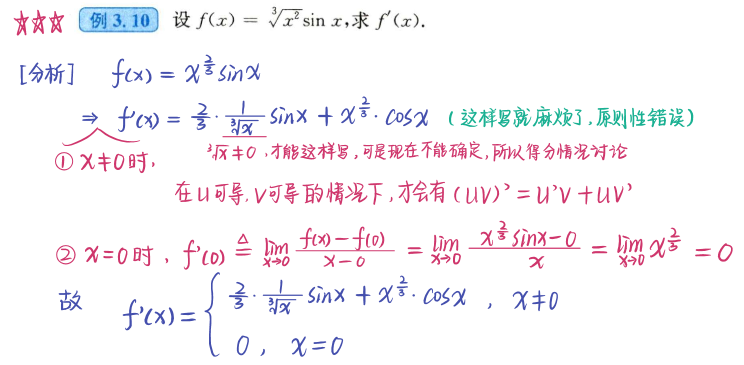 ☆☆☆ 例 3.10 设 f(x) = ∛x² sin x,求 f′(x).
[分析] f(x) = x^{2/3} sinx
⇒ f'(x) = 2/3 · 1/∛x sinx + x^{2/3} · cosx (这样写就麻烦了,原则性错误)
① x≠0时, ∛x ≠ 0,才能这样写,可是现在不能确定,所以得分情况讨论
在 U可导,V可导的情况下,才会有 (UV)' = U'V + UV'
② x=0时, f'(0) ≜ lim_{x→0} (f(x) − f(0))/(x − 0) = lim_{x→0} (x^{2/3} sinx − 0)/x = lim_{x→0} x^{2/3} = 0
故 f'(x) = { 2/3 · 1/∛x sinx + x^{2/3} · cosx , x≠0
0 , x=0